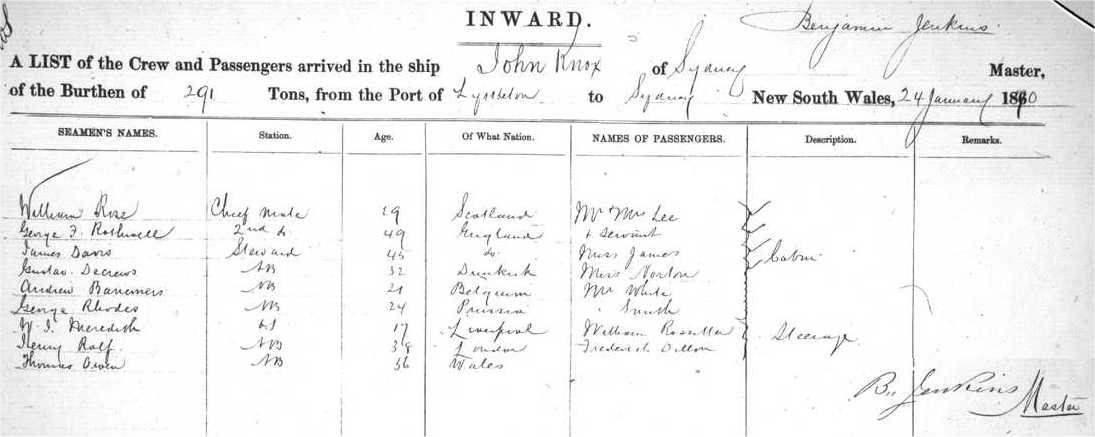 INWARD. Benjamin Jenkins
A LIST of the Crew and Passengers arrived in the ship John Knox of Sydney Master,
of the Burthen of 291 Tons, from the Port of Lyttelton to Sydney New South Wales, 24 January 1870
SEAMEN'S NAMES. Station. Age. Of What Nation. NAMES OF PASSENGERS. Description. Remarks.
William Rose Chief Mate 29 Scotland Mr Mrs Lee
George F. Rothwell 2nd do 49 England + Servant
James Davis Steward 45 do. Miss James Cabin
Gustav 32 Dunkirk Miss Norton
Andrew 21 Belgium Mr White
George Rhodes AB 24 Prussia " Smith
W. J. Meredith 17 Liverpool William Steerage
Henry Rolf AB 38 London Frederick Dillon
Thomas Owen AB 36 Wales
Bn Jenkins
Master